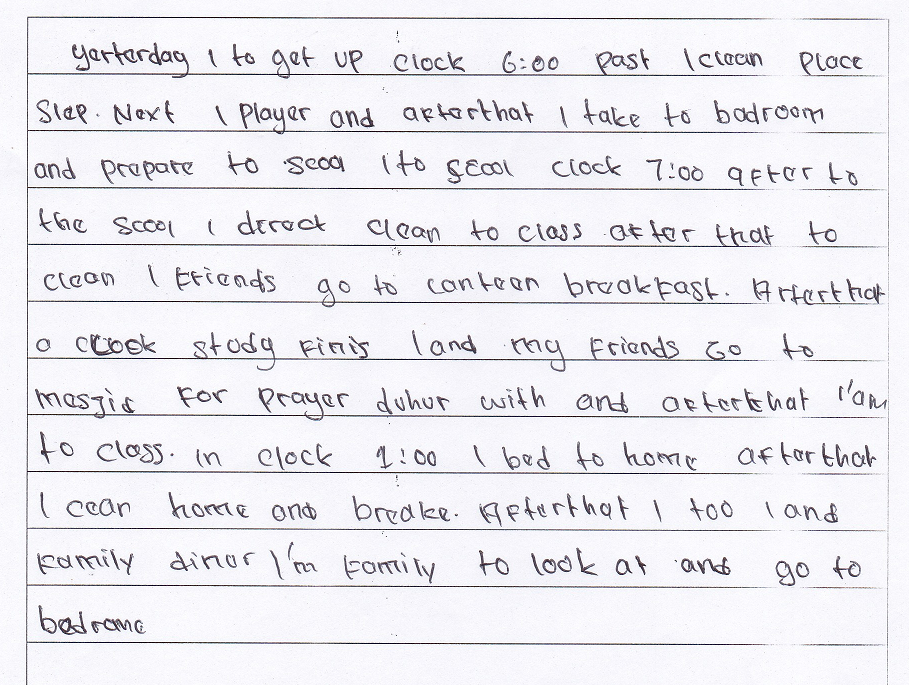 yerterday I to get up clock 6:00 past I clean place
slep. Next I player and afterthat I take to badroom
and prepare to scool I to scool clock 7:00 after to
the scool I derect clean to class after that to
clean I Friends go to canteen breakfast. Afterthat
a clook study Finis I and my Friends Go to
mesjid For prayer duhur with and afterthat I'am
to class. in clock 1:00 I bed to home afterthat
I cean home and breake. Afterthat I too I and
Family diner I'm Family to look at and go to
bedrome